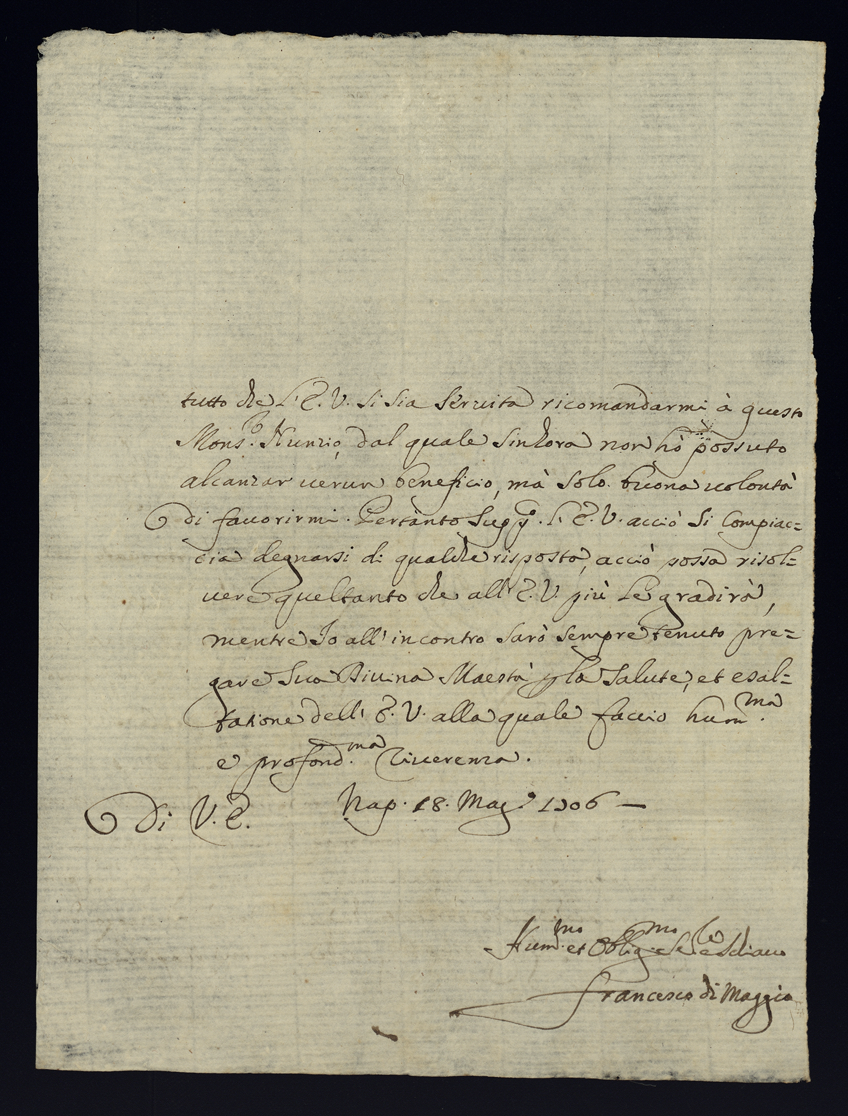 tutto che l'E. V. si sia seruita ricomandarmi à questo
Mons.r Nunzio, dal quale sinhora non hò possuto
alcanzar uerun beneficio, mà solo buona uolontà
di fauorirmi. Pertanto supp.o l'E. V. acciò si compiac=
cia degnarsi di qualche risposta, acciò possa risol=
uere quel tanto che all'E. V. più le gradirà,
mentre Io all'incontro sarò sempre tenuto pre=
gare Sua Diuina Maestà p la salute, et esal=
tatione dell'E. V. alla quale faccio hum.ma
e profond.ma riuerenza.
Di V. E. Nap. 18. Mag.o 1706 —
Hum.mo et Oblig.mo Se.le e Schiauo
Francesco di Maggio